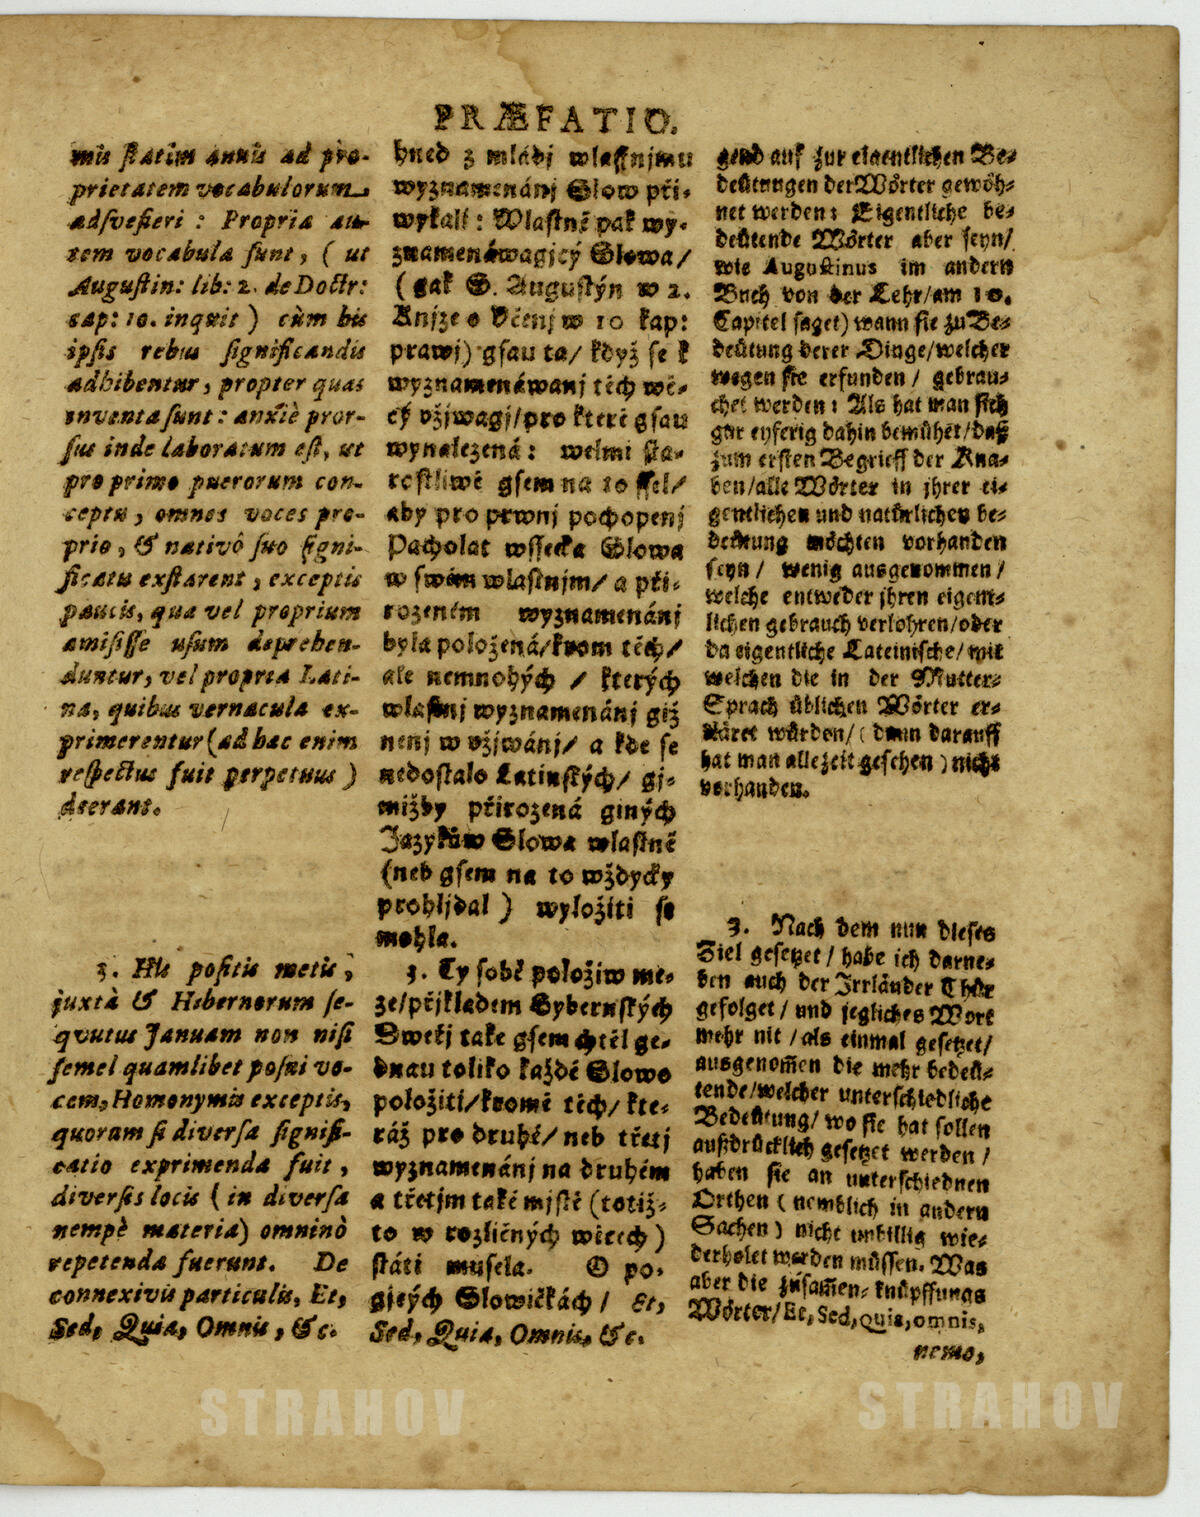 PRÆFATIO.
mis statim annis ad pro-
prietatem vocabulorum
adsvesieri : Propria au-
tem vocabula sunt, ( ut
Augustin: lib: 2. de Doctr:
cap: 10. inquit ) cùm his
ipsis rebus significandis
adhibentur, propter quas
inventa sunt : anxiè pror-
sus inde laboratum est, ut
pro primo puerorum con-
ceptu, omnes voces pro-
prio, & nativô suo signi-
ficatu exstarent, exceptis
paucis, qua vel proprium
amisisse usum deprehen-
duntur, vel propria Lati-
na, quibus vernacula ex-
primerentur (ad hac enim
respectus fuit perpetuus )
deerant.
3. His positis metis,
juxtà & Hibernorum se-
qvutus Januam non nisi
semel quamlibet posui vo-
cem, Homonymis exceptis,
quorum si diversa signifi-
catio exprimenda fuit,
diversis locis ( in diversa
nempè materia) omninò
repetenda fuerunt. De
connexivis particulis, Et,
Sed, Quia, Omnis, &c.
hned z mládj wlassnjmu
wyznamenánj Slow při-
wykali : Wlastně pak wy-
znamenáwagjcý Slowa/
( gak S. Augustýn w 2.
Knjze o Včenj w 10 kap:
prawj) gsau ta/ když se k
wyznamenáwanj těch wě-
cý vžjwagj/pro které gsau
wynalezená : welmi sta-
rostliwě gsem na to ssel/
aby pro prwnj pochopenj
Pacholat wssecka Slowa
w swém wlastnjm/ a při-
rozeném wyznamenánj
byla položená/krom těch/
ale nemnohých / kterých
wlastnj wyznamenánj giž
nenj w vžjwánj/ a kde se
nedostalo Latinských/ gj-
mižby přirozená giných
Jazyků̊w Slowa wlastně
(neb gsem na to wždycky
prohljdal ) wyložiti se
mohla.
3. Ty sobě položiw me-
ze/přjkladem Hybernských
Dweřj take gsem chtěl ge-
dnau toliko každé Slowo
položiti/kromě těch/ kte-
ráž pro druhé/ neb třetj
wyznamenánj na druhém
a třetjm také mjstě (totiž-
to w rozličných wěcech )
státi musela. O po-
gjcých Slowičkách / Et,
Sed, Quia, Omnis, &c.
gend auf zur eigentlichen Be-
deütungen der Wörter gewöh-
net werden: Eigentliche be-
deütende Wörter aber seyn/
wie Augustinus im andern
Buch von der Lehr/am 10.
Capitel saget) wann sie zu Be-
deütung derer Dinge/welcher
wegen sie erfunden / gebrau-
chet werden: Als hat man sich
gar eyferig dahin bemühet/daß
zum ersten Begrieff der Kna-
ben/alle Wörter in jhrer ei-
gentlichen und natürlichen be-
deütung möchten vorhanden
seyn / wenig ausgenommen /
welche entweder jhren eigent-
lichen gebrauch verlohren/oder
da eigentliche Lateinische/ mit
welchen die in der Mutter-
Sprach üblichen Wörter er-
kläret würden/ ( dann darauff
hat man allezeit gesehen ) nicht
vorhanden.
3. Nach dem nun dieses
Ziel gesetzet / habe ich darne-
ben auch der Irrländer Thür
gefolget / und jegliches Wort
mehr nit / als einmal gesetzet/
ausgenom̄en die mehr bedeü-
tende/welcher unterschiedliche
Bedeütung/ wo sie hat sollen
außdrücklich gesetzet werden /
haben sie an unterschiednen
Orthen ( nemblich in andern
Sachen ) nicht unbillig wie-
derholet werden müssen. Was
aber die zusam̄en-knüpffungs
Wörter/ Et, Sed, quia, omnis,
nemo,
STRAHOV
STRAHOV